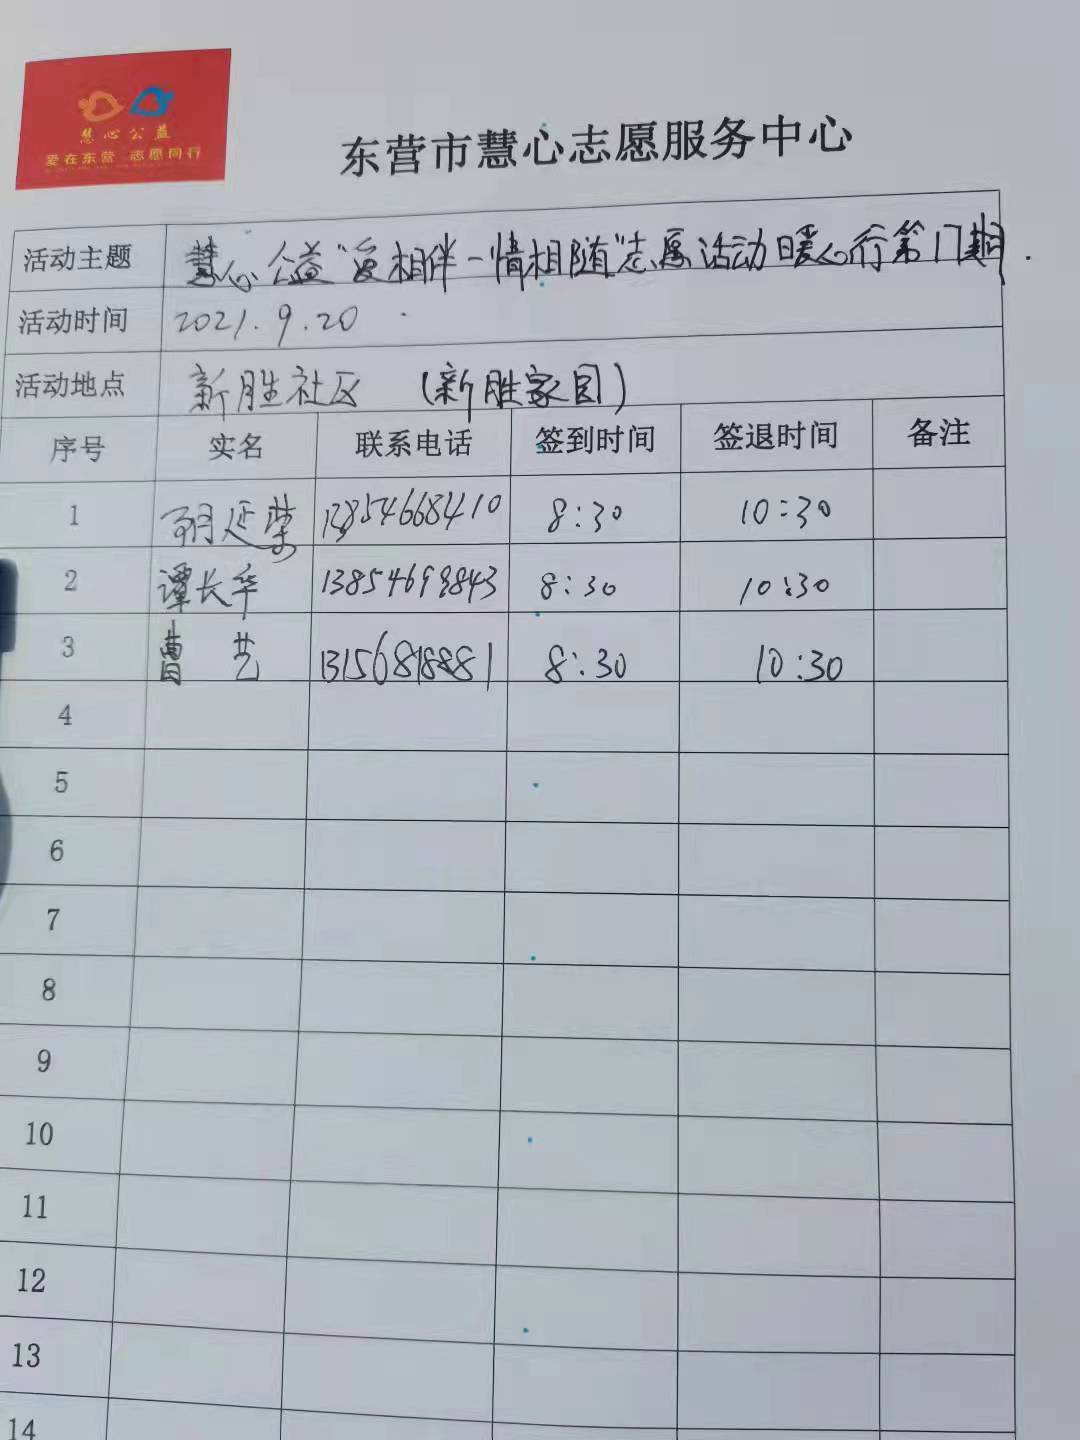 慧心公益
爱在东营 志愿同行
东营市慧心志愿服务中心
活动主题 慧心公益"爱相伴-情相随"志愿活动暖心行第17期.
活动时间 2021.9.20
活动地点 新胜社区 (新胜家园)
序号 实名 联系电话 签到时间 签退时间 备注
1 延荣 13854668410 8:30 10:30
2 谭长华 13854699843 8:30 10:30
3 曹艺 13156818881 8:30 10:30
4
5
6
7
8
9
10
11
12
13
14